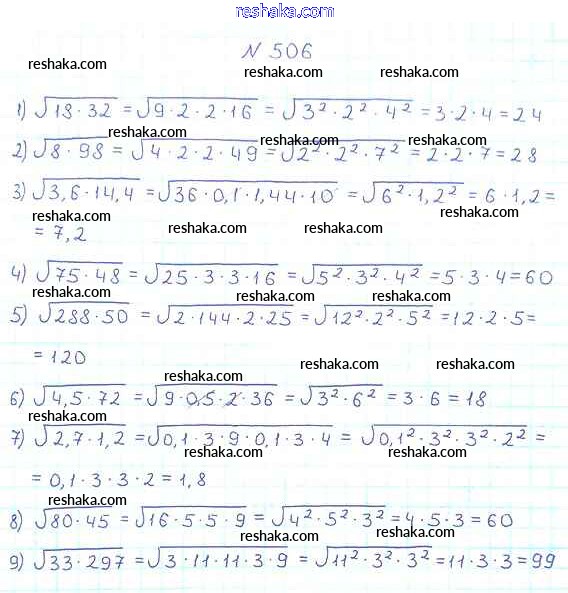 reshaka.com
N 506
reshaka.com reshaka.com reshaka.com
1) √18·32 = √9·2·2·16 = √3²·2²·4² = 3·2·4 = 24
reshaka.com reshaka.com
2) √8·98 = √4·2·2·49 = √2²·2²·7² = 2·2·7 = 28
3) √3,6·14,4 = √36·0,1·1,44·10 = √6²·1,2² = 6·1,2 =
reshaka.com reshaka.com
= 7,2
reshaka.com reshaka.com
4) √75·48 = √25·3·3·16 = √5²·3²·4² = 5·3·4 = 60
reshaka.com reshaka.com reshaka.com
5) √288·50 = √2·144·2·25 = √12²·2²·5² = 12·2·5 =
= 120
reshaka.com reshaka.com
reshaka.com
6) √4,5·72 = √9·0,5·2·36 = √3²·6² = 3·6 = 18
reshaka.com
7) √2,7·1,2 = √0,1·3·9·0,1·3·4 = √0,1²·3²·3²·2² =
reshaka.com reshaka.com
= 0,1·3·3·2 = 1,8
reshaka.com
8) √80·45 = √16·5·5·9 = √4²·5²·3² = 4·5·3 = 60
reshaka.com reshaka.com
9) √33·297 = √3·11·11·3·9 = √11²·3²·3² = 11·3·3 = 99
reshaka.com reshaka.com